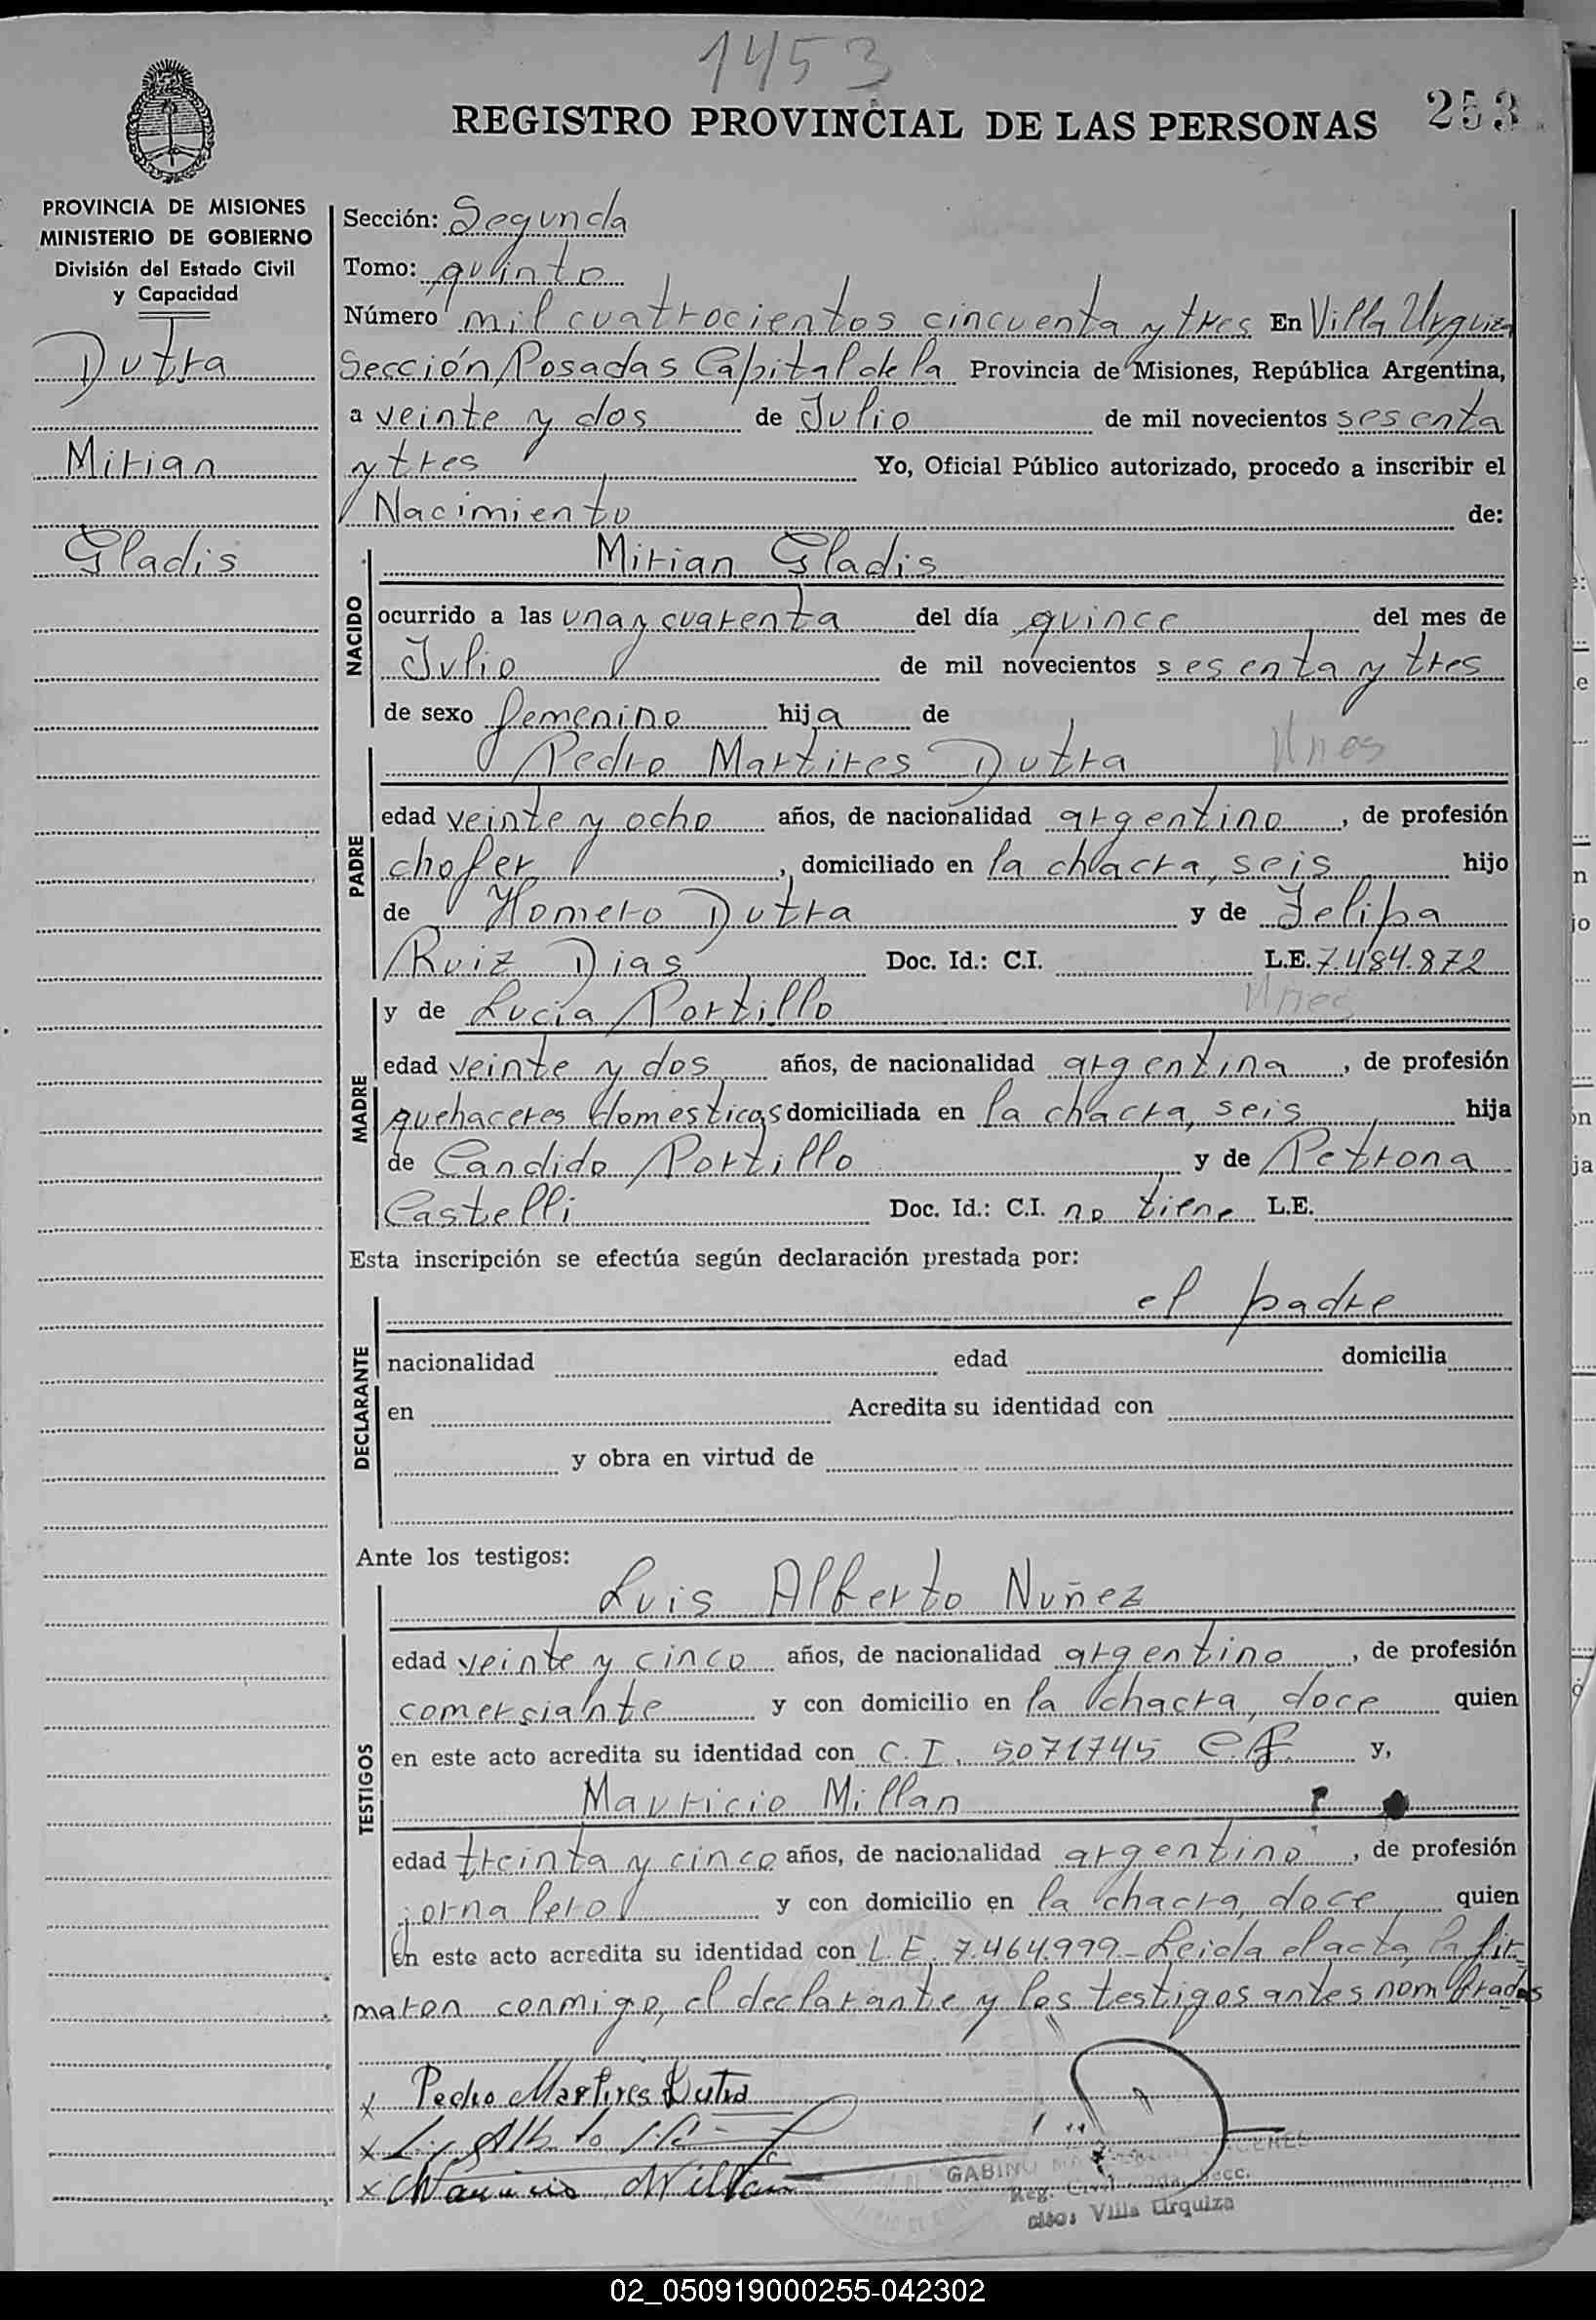 1453
REGISTRO PROVINCIAL DE LAS PERSONAS 253
PROVINCIA DE MISIONES
MINISTERIO DE GOBIERNO
División del Estado Civil
y Capacidad
Dutra
Mirian
Gladis
Sección: Segunda
Tomo: quinto
Número mil cuatrocientos cincuenta y tres En Villa Urquiza
Sección Posadas Capital de la Provincia de Misiones, República Argentina,
a veinte y dos de Julio de mil novecientos sesenta
y tres Yo, Oficial Público autorizado, procedo a inscribir el
Nacimiento de:
NACIDO
Mirian Gladis
ocurrido a las una y cuarenta del día quince del mes de
Julio de mil novecientos sesenta y tres
de sexo femenino hija de
PADRE
Pedro Martires Dutra
edad veinte y ocho años, de nacionalidad argentino, de profesión
chofer, domiciliado en la chacra, seis hijo
de Homero Dutra y de Felipa
Ruiz Dias Doc. Id.: C.I. L.E. 7.484.872
MADRE
y de Lucia Portillo
edad veinte y dos años, de nacionalidad argentina, de profesión
quehaceres domesticos domiciliada en la chacra, seis hija
de Candido Portillo y de Petrona
Castelli Doc. Id.: C.I. no tiene L.E.
Esta inscripción se efectúa según declaración prestada por:
DECLARANTE
el padre
nacionalidad edad domicilia
en Acredita su identidad con
y obra en virtud de
Ante los testigos:
TESTIGOS
Luis Alberto Nuñez
edad veinte y cinco años, de nacionalidad argentino, de profesión
comersiante y con domicilio en la chacra, doce quien
en este acto acredita su identidad con C.I. 5071745 y,
Mauricio Millan
edad treinta y cinco años, de nacionalidad argentino, de profesión
jornalero y con domicilio en la chacra, doce quien
en este acto acredita su identidad con L.E. 7.464.999 - Leida el acta, la fir-
maron conmigo, el declarante y los testigos antes nombrados
x Pedro Martires Dutra
x
x Mauricio Millan
GABINO
Reg. Civil Secc.
Villa Urquiza
02_050919000255-042302